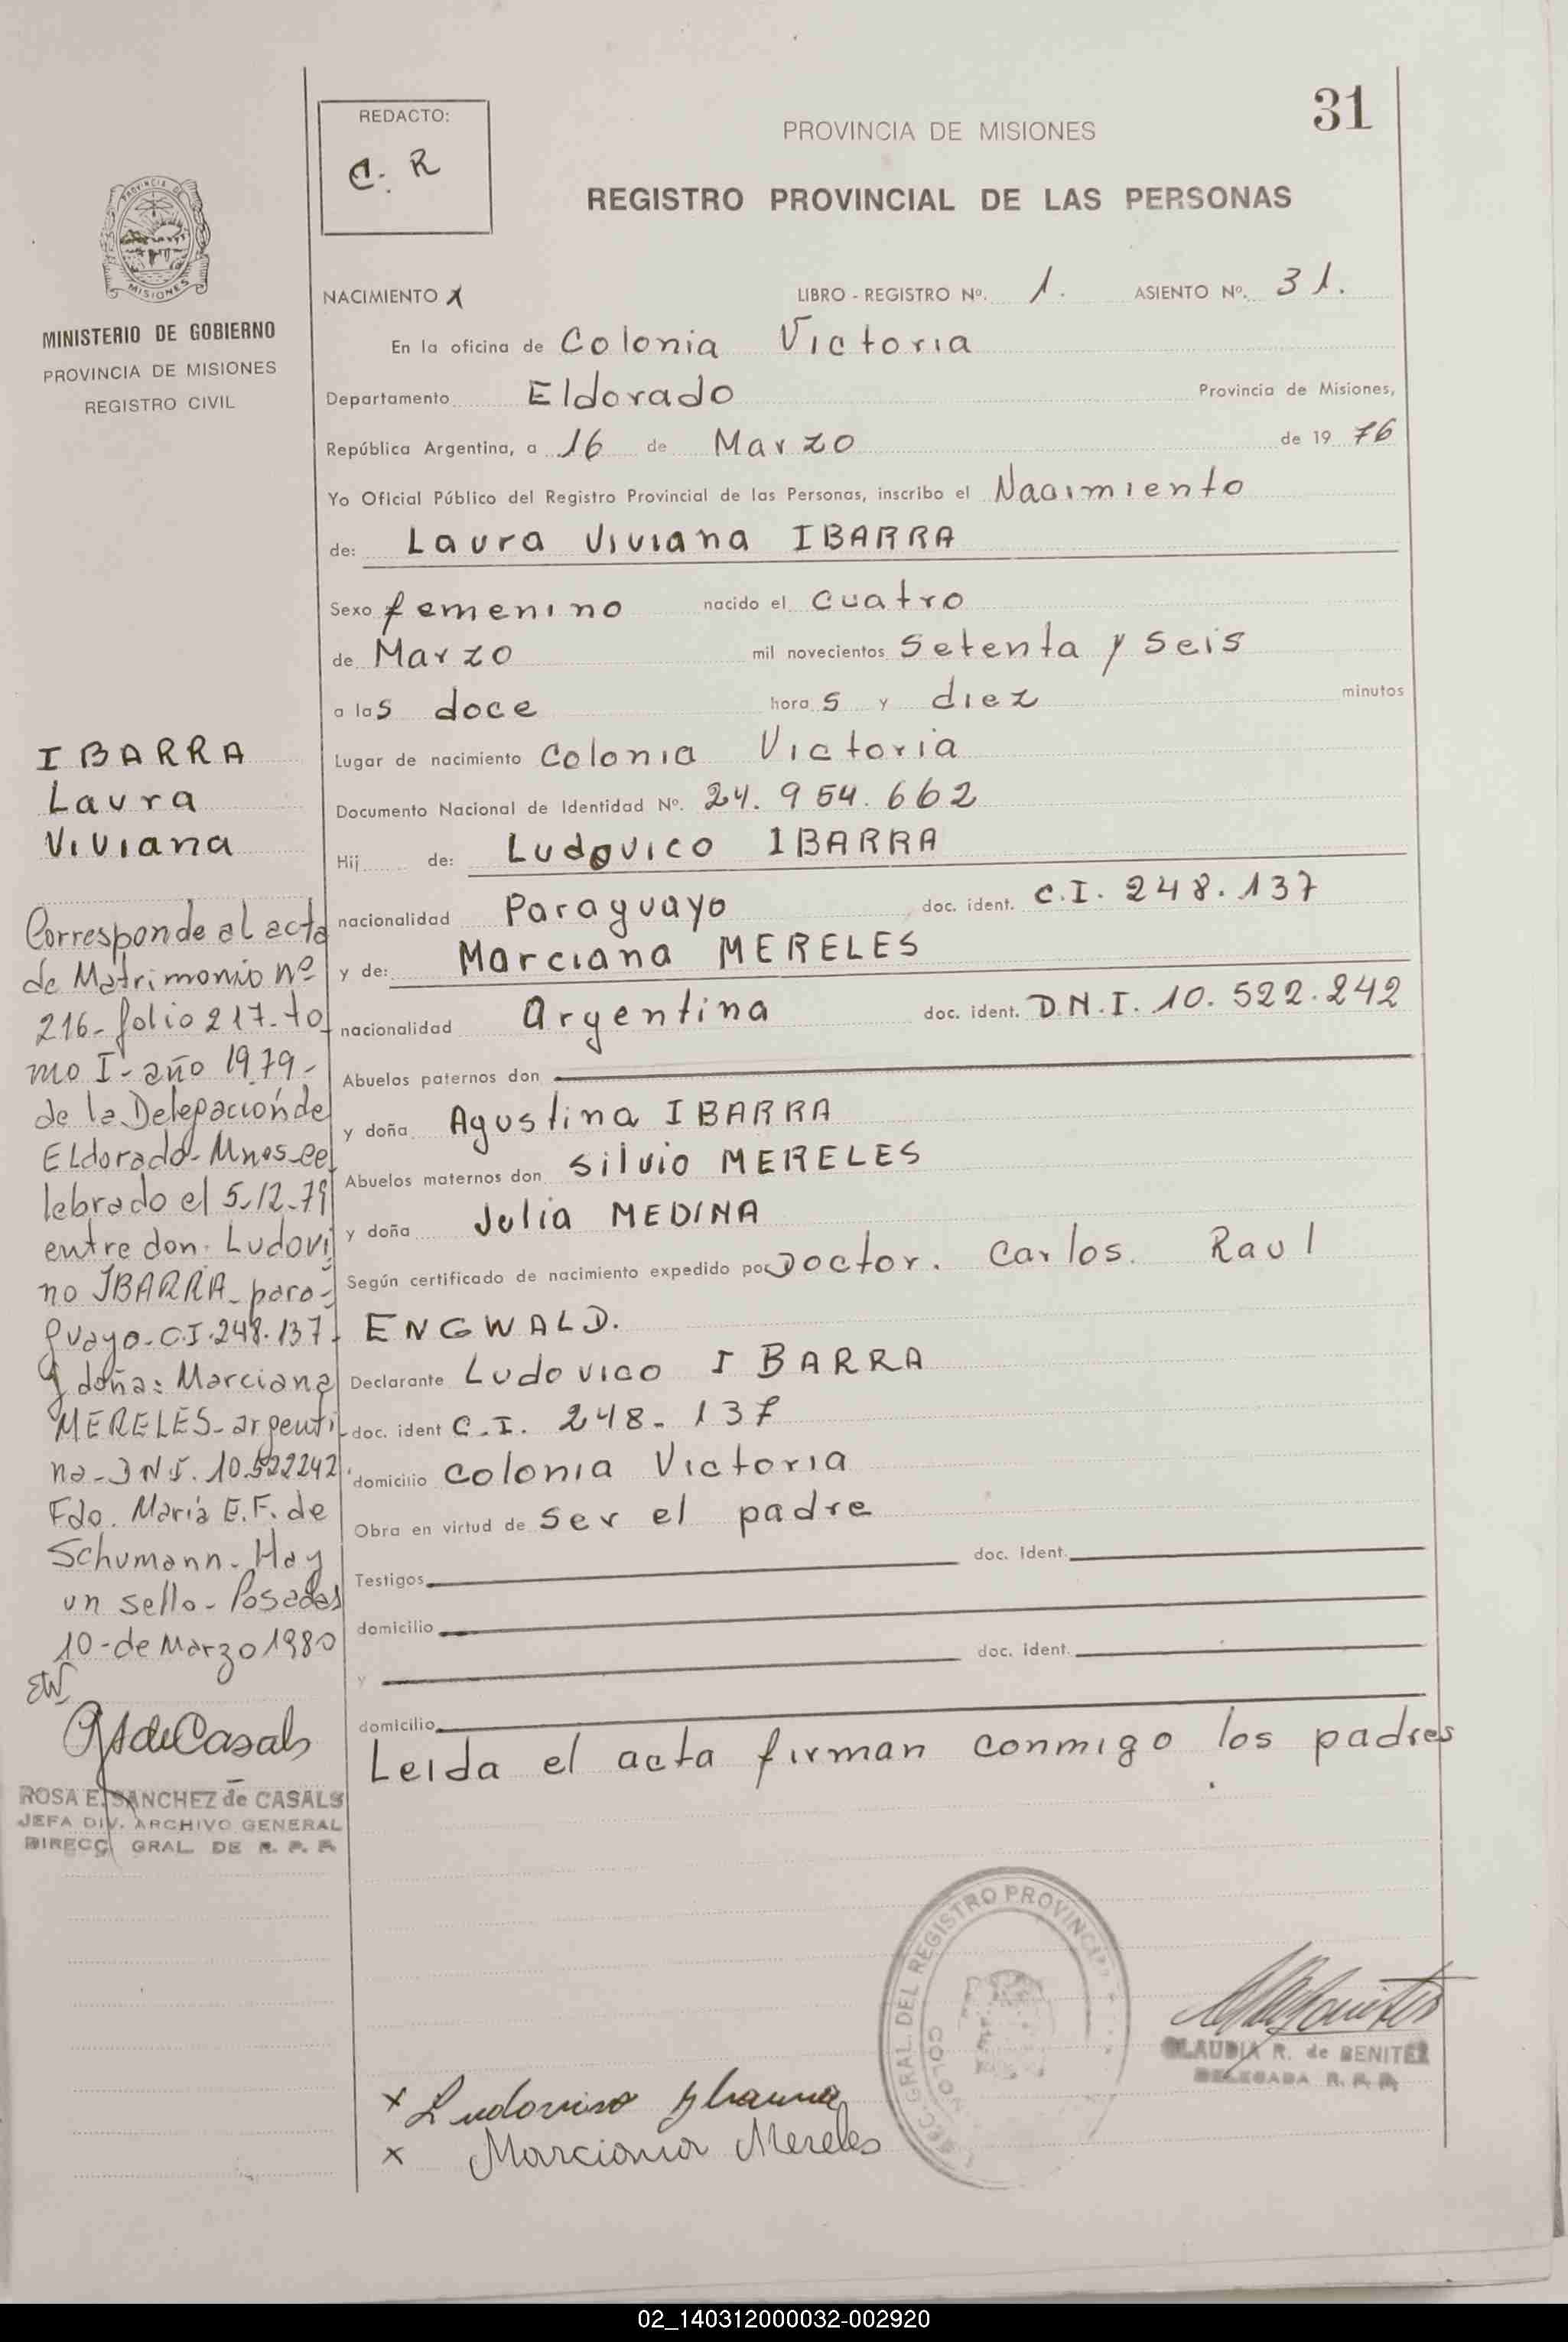 31
REDACTO:
C. R
PROVINCIA DE MISIONES
REGISTRO PROVINCIAL DE LAS PERSONAS
PROVINCIA DE
MISIONES
MINISTERIO DE GOBIERNO
PROVINCIA DE MISIONES
REGISTRO CIVIL
NACIMIENTO X LIBRO - REGISTRO Nº. 1. ASIENTO Nº. 31.
En la oficina de Colonia Victoria
Departamento Eldorado Provincia de Misiones,
República Argentina, a 16 de Marzo de 1976
Yo Oficial Público del Registro Provincial de las Personas, inscribo el Nacimiento
de: Laura Viviana IBARRA
Sexo femenino nacido el cuatro
de Marzo mil novecientos setenta y seis
a las doce horas y diez minutos
Lugar de nacimiento Colonia Victoria
Documento Nacional de Identidad Nº. 24.954.662
Hij de: Ludovico IBARRA
nacionalidad Paraguayo doc. ident. C.I. 248.137
y de: Marciana MERELES
nacionalidad Argentina doc. ident. D.N.I. 10.522.242
Abuelos paternos don
y doña Agustina IBARRA
Abuelos maternos don Silvio MERELES
y doña Julia MEDINA
Según certificado de nacimiento expedido por Doctor. Carlos. Raul
ENGWALD.
Declarante Ludovico IBARRA
doc. ident C.I. 248-137
domicilio Colonia Victoria
Obra en virtud de ser el padre
Testigos doc. ident.
domicilio
y doc. ident.
domicilio
Leida el acta firman conmigo los padres
.
IBARRA
Laura
Viviana
Corresponde al acta
de Matrimonio nº
216-folio 217-to
mo I-año 1979-
de la Delegación de
ELdorado-Mnes-ce
lebrado el 5-12-79
entre don. Ludovi
no IBARRA-para-
guayo-C.I.248.137-
y doña: Marciana
MERELES-argenti
na-DNI.10.522242.
Fdo. María E.F. de
Schumann-Hay
un sello-Posadas
10-de Marzo 1980
ROSA E. SANCHEZ de CASALS
JEFA DIV. ARCHIVO GENERAL
DIRECC. GRAL. DE R. P. P.
GRAL. DEL REGISTRO PROVINCIAL
COLON
CLAUDIA R. de BENITEZ
DELEGADA R. P. P.
x Ludovino Ybarra
x Marciana Mereles
02_140312000032-002920